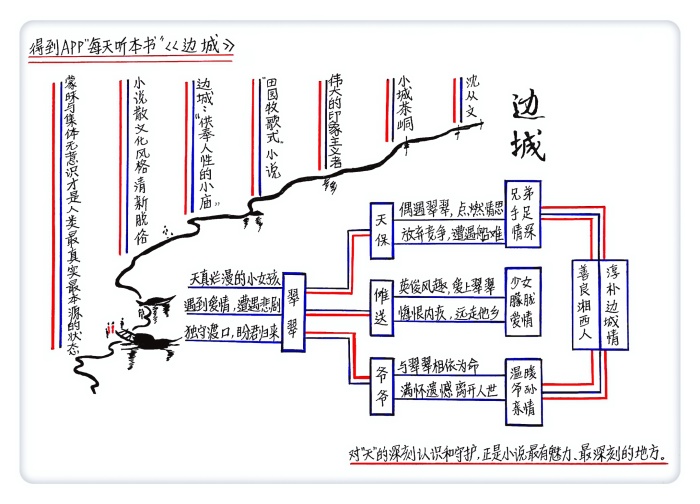 得到APP“每天听本书”《边城》
边城
沈从文
小城茶峒
伟大的印象主义者
“田园牧歌式”小说
边城：“供奉人性的小庙”
小说散文化风格清新脱俗
蒙昧与集体无意识才是人类最真实最本源的状态
天真烂漫的小女孩
遇到爱情，遭遇悲剧
独守渡口，盼君归来
翠翠
天保
偶遇翠翠，点燃情思
放弃竞争，遭遇船难
兄弟手足情深
傩送
英俊风趣，爱上翠翠
悔恨内疚，远走他乡
少女朦胧爱情
爷爷
与翠翠相依为命
满怀遗憾，离开人世
温暖爷孙亲情
善良湘西人
淳朴边城情
对“天”的深刻认识和守护，正是小说最有魅力、最深刻的地方。